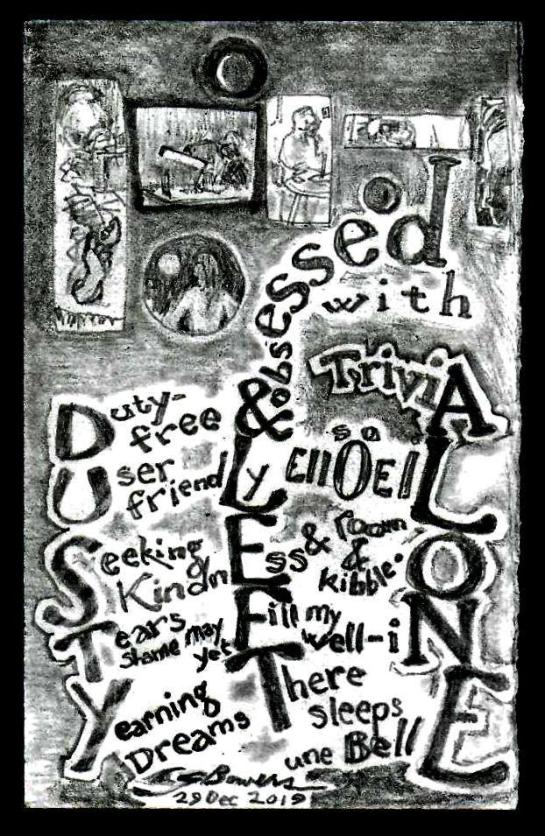 obsessed
with
TriviA
Duty-
free &
so
User
friendLy EllOEll L
Seeking
KindnEss & room
& kibble. O
Tears
shame may
yet Fill my
well-iN
Yearning
Dreams There
sleeps
une BellE
29 Dec 2019